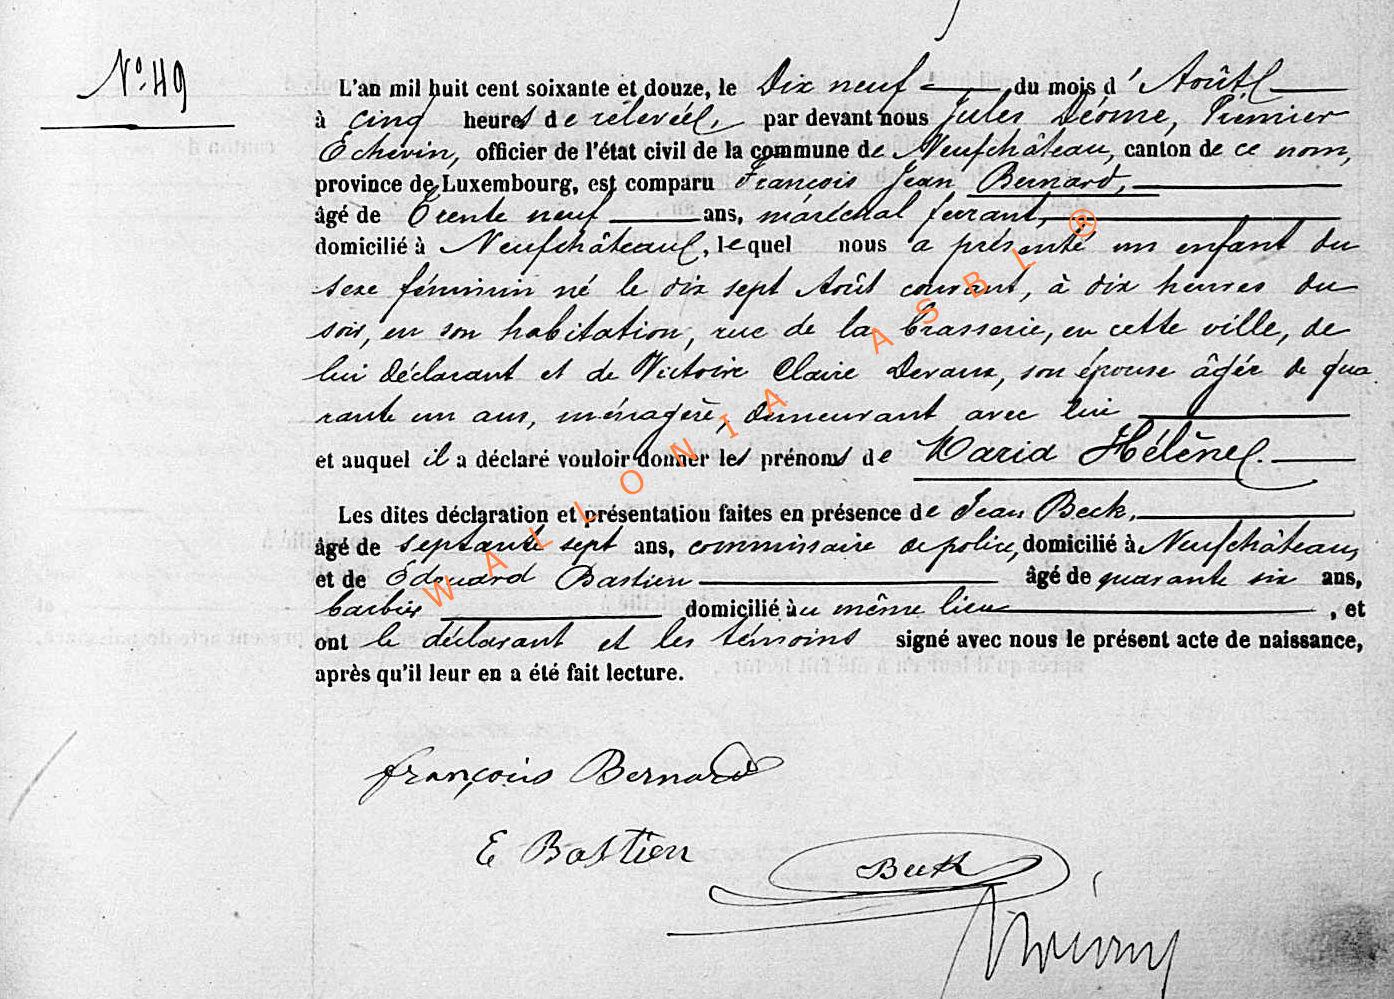 N° 49
L'an mil huit cent soixante et douze, le Dix neuf du mois d'Août
à cinq heures de relevée, par devant nous Jules Déome, Premier
Echevin, officier de l'état civil de la commune de Neufchâteau, canton de ce nom,
province de Luxembourg, est comparu François Jean Bernard,
âgé de Trente neuf ans, maréchal ferrant,
domicilié à Neufchâteau, lequel nous a présenté un enfant du
sexe féminin né le dix sept Août courant, à dix heures du
soir, en son habitation, rue de la brasserie, en cette ville, de
lui déclarant et de Victoire Claire Devaux, son épouse âgée de qua
rante un ans, ménagère, demeurant avec lui
et auquel il a déclaré vouloir donner les prénoms de Maria Hélène.
Les dites déclaration et présentation faites en présence de Jean Beck,
âgé de septante sept ans, commissaire de police, domicilié à Neufchâteau,
et de Edouard Bastien âgé de quarante six ans,
barbier domicilié au même lieu, et
ont le déclarant et les témoins signé avec nous le présent acte de naissance,
après qu'il leur en a été fait lecture.
françois Bernard
E Bastien
Beck
WALLONIA ASBL ®